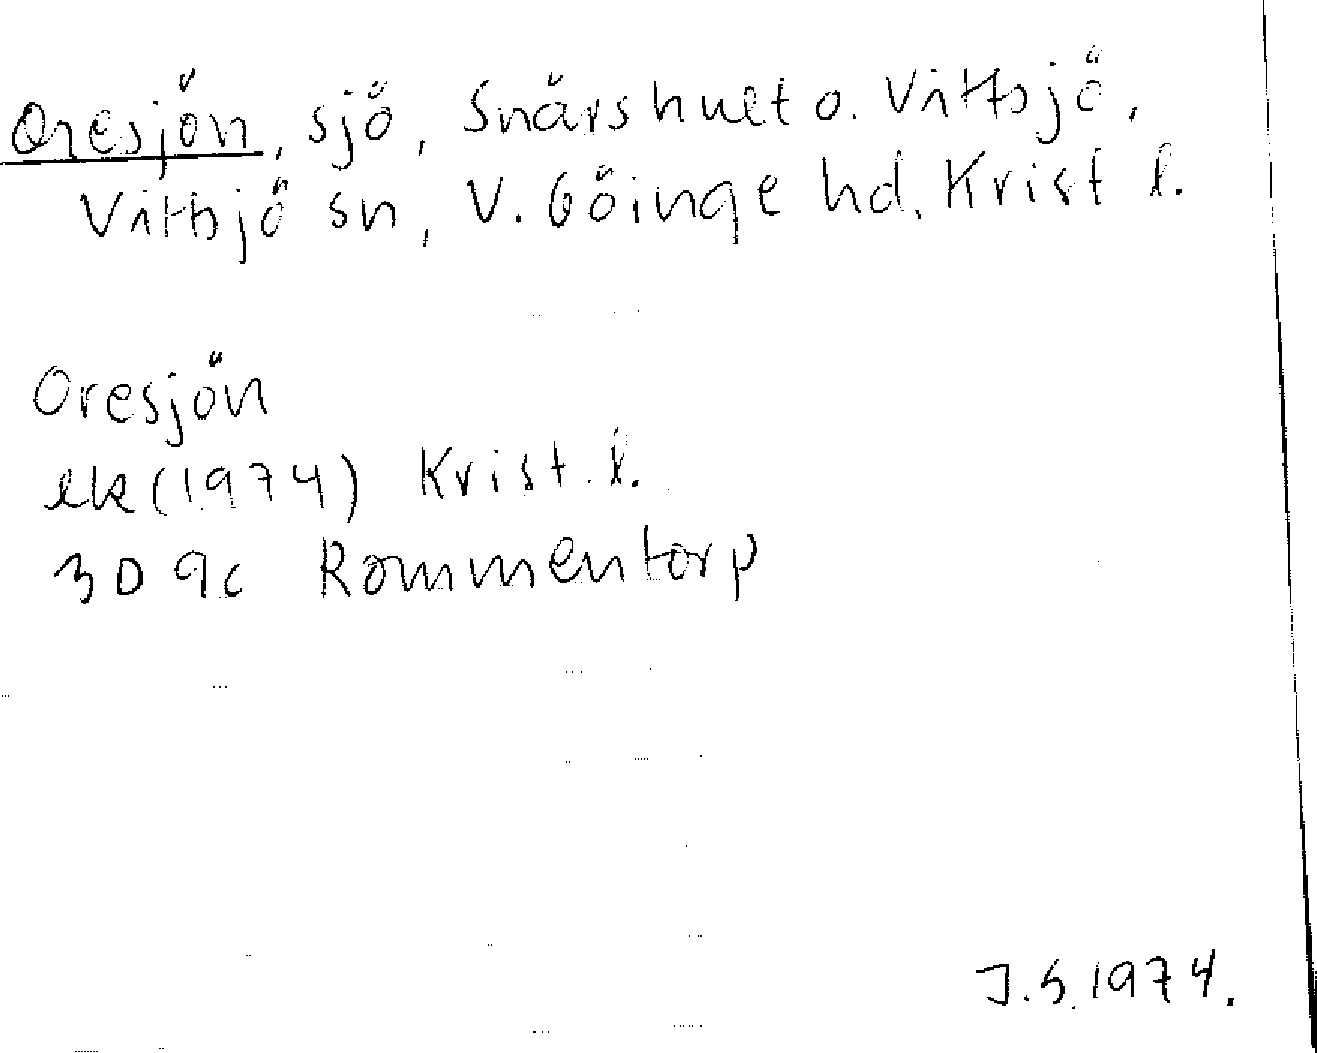 Oresjön, sjö, Snärshult o. Vittsjö,
Vittsjö sn, V. Göinge hd. Krist l.
Oresjön
ek (1974) Krist. l.
3D 9c Rommentorp
J.S. 1974.